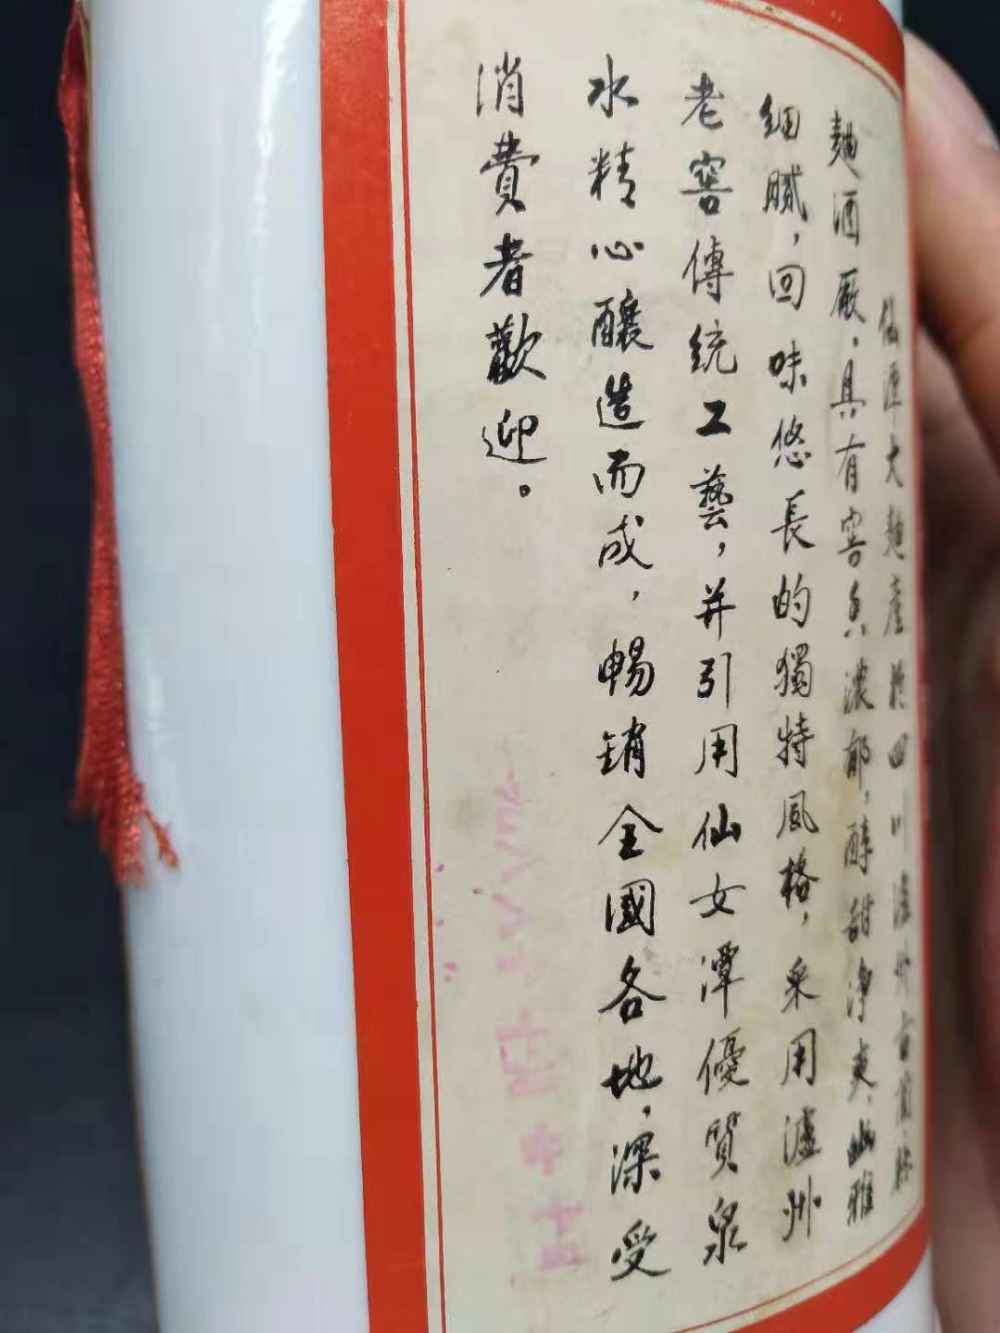 仙潭大麯產於四川瀘州古藺縣
麯酒厰，具有窖香濃郁，醇甜净爽、幽雅
細膩，回味悠長的獨特風格，采用瀘州
老窖傳統工藝，并引用仙女潭優質泉
水精心釀造而成，暢銷全國各地，深受
消費者歡迎。